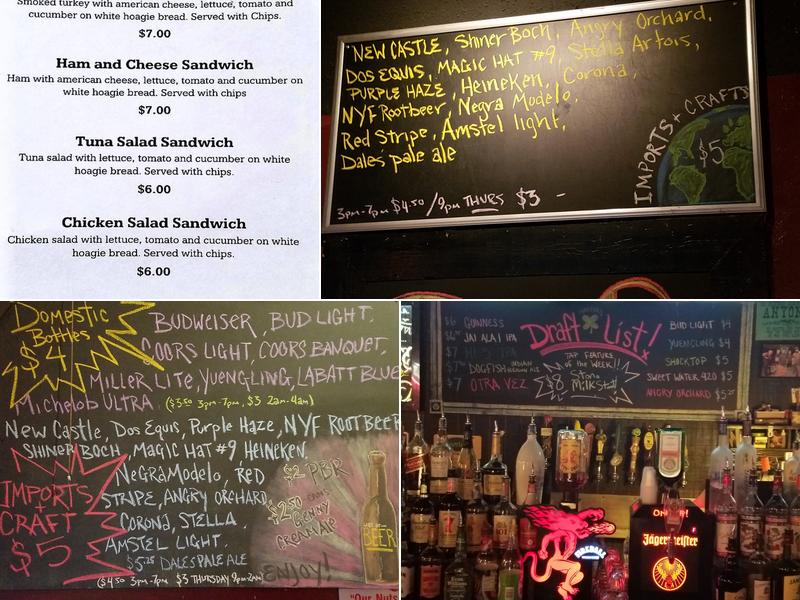 Smoked turkey with american cheese, lettuce, tomato and
cucumber on white hoagie bread. Served with Chips.
$7.00
Ham and Cheese Sandwich
Ham with american cheese, lettuce, tomato and cucumber on
white hoagie bread. Served with chips
$7.00
Tuna Salad Sandwich
Tuna salad with lettuce, tomato and cucumber on white
hoagie bread. Served with chips.
$6.00
Chicken Salad Sandwich
Chicken salad with lettuce, tomato and cucumber on white
hoagie bread. Served with chips.
$6.00
NEW CASTLE, Shiner Boch, Angry Orchard,
DOS EQUIS, MAGIC HAT #9, Stella Artois,
PURPLE HAZE, Heineken, Corona,
NYF Rootbeer, Negra Modelo,
Red Stripe, Amstel light,
Dales pale ale
IMPORTS + CRAFTS
$5
3pm-7pm $4.50 / 9pm THURS $3 -
DOMESTIC
Bottles
$4
BUDWEISER, BUD LIGHT,
COORS LIGHT, COORS BANQUET,
MILLER LITE, YUENGLING, LABATT BLUE
Michelob ULTRA ($3.50 3pm-7pm, $3 2am-4am)
New Castle, Dos Equis, Purple Haze, NYF ROOTBEER
SHINER BOCH, MAGIC HAT #9, HEINEKEN,
NEGRA Modelo, RED
STRIPE, ANGRY ORCHARD,
CORONA, STELLA,
AMSTEL LIGHT.
$5.25 DALES PALE ALE
($4.50 3pm-7pm $3 THURSDAY 9pm-2am)
IMPORTS
+
CRAFT
$5
$2 PBR
$2.50
GENNY
CREAM ALE
BEER
ENJOY!
"Our Nuts
Draft List!
$6 GUINNESS
JAI ALAI IPA
$7
DOGFISH INDIAN BROWN ALE
$7 OTRA VEZ
TAP FEATURE
OF THE WEEK!!
$8 Stone
Milk Stout
BUD LIGHT $4
YUENGLING $4
SHOCKTOP $5
SWEET WATER 420 $5
ANGRY ORCHARD $5.25
ANTON
FIREBALL
Jägermeister